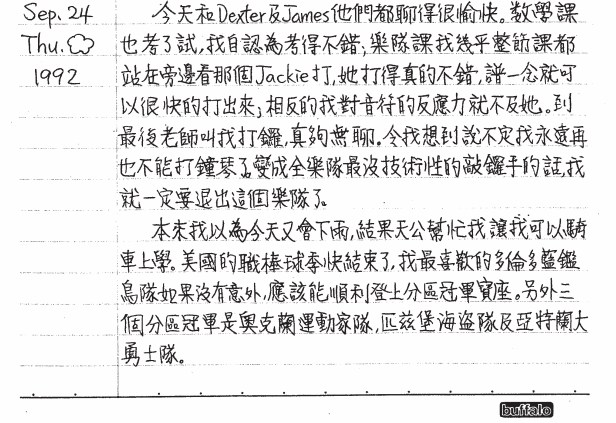 Sep. 24
Thu.
1992
今天和Dexter及James他們都聊得很愉快。數學課
也考了試,我自認為考得不錯,樂隊課我幾乎整節課都
站在旁邊看那個Jackie打,她打得真的不錯,譜一念就可
以很快的打出來;相反的我對音符的反應力就不及她。到
最後老師叫我打鑼,真夠無聊。令我想到說不定我永遠再
也不能打鐘琴了。變成全樂隊最沒技術性的敲鑼手的話,我
就一定要退出這個樂隊了。
本來我以為今天又會下雨,結果天公幫忙我讓我可以騎
車上學。美國的職棒球季快結束了,我最喜歡的多倫多藍鑑
鳥隊如果沒有意外,應該能順利登上分區冠軍寶座。另外三
個分區冠軍是奧克蘭運動家隊,匹茲堡海盜隊及亞特蘭大
勇士隊。
buffalo